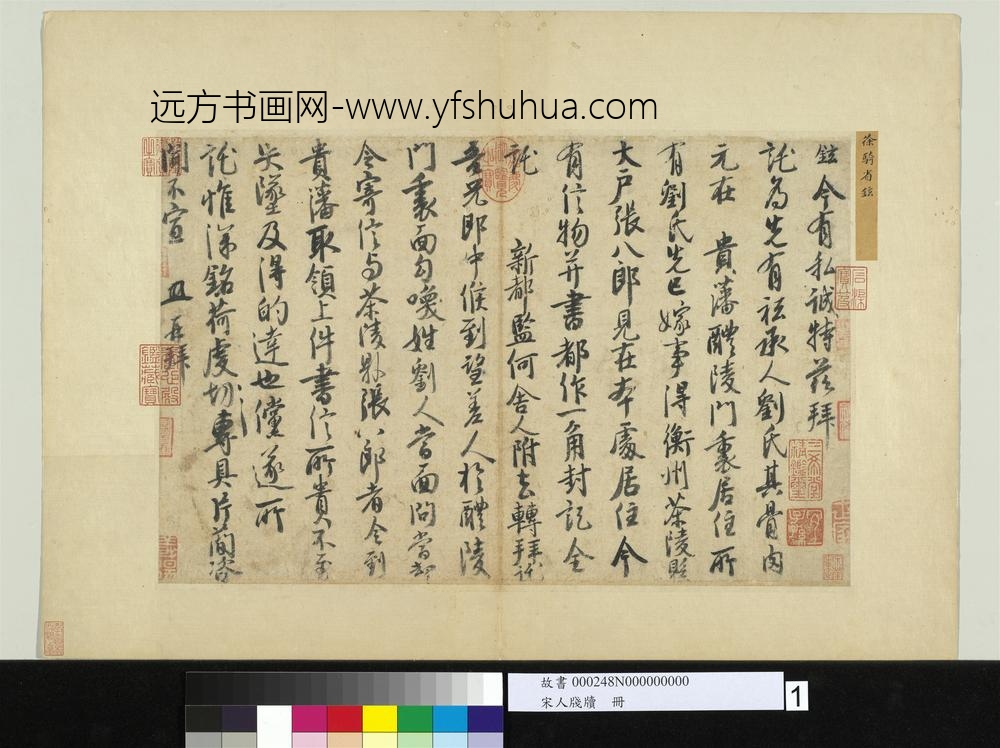 远方书画网-www.yfshuhua.com
徐騎省鉉
鉉今有私誠特茲拜
託為先有祗承人劉氏其骨肉
元在 貴藩醴陵門裏居住所
有劉氏先已嫁事得衡州茶陵縣
大戶張八郎見在本處居住今
有信物并書都作一角封記全
託 新都監何舍人附去轉拜託
吾兄郎中候到望差人於醴陵
門裏面勾喚姓劉人當面問當却
令寄信与茶陵縣張八郎者令到
貴藩取領上件書信所貴不至
失墜及得的達也儻遂所
託惟深銘荷虔切專具片簡咨
聞不宣 再拜
故書 000248N000000000
宋人牋牘 冊
1